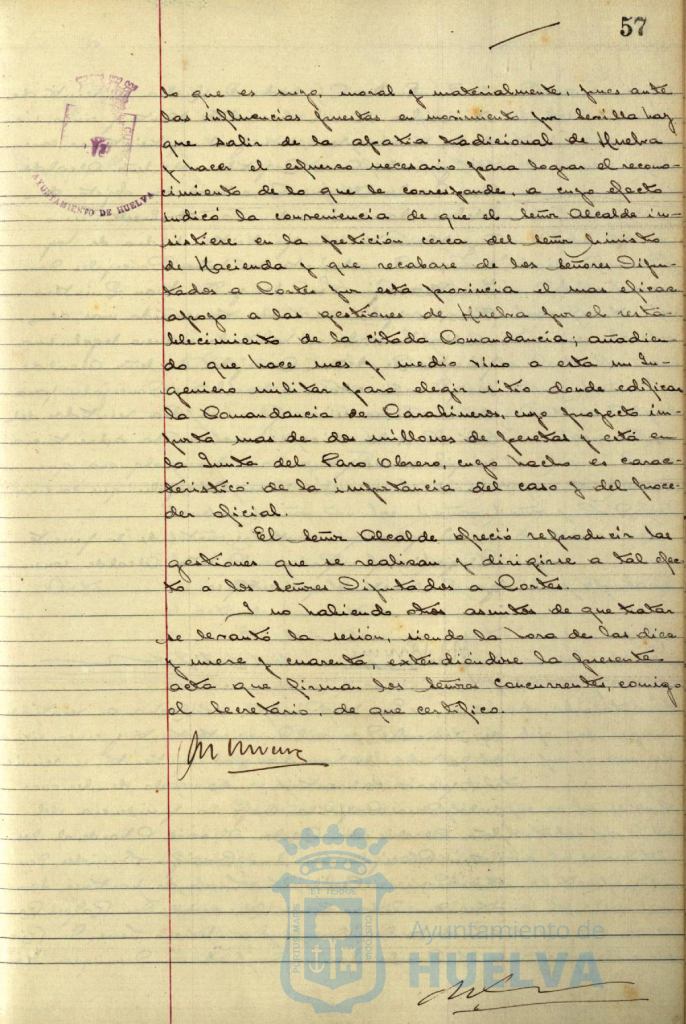 57
AYUNTAMIENTO DE HUELVA
lo que es suyo, moral y materialmente, pues ante
las influencias puestas en movimiento por Sevilla hay
que salir de la apatia tradicional de Huelva
y hacer el esfuerzo necesario para lograr el recono-
cimiento de lo que le corresponde, a cuyo efecto
indicó la conveniencia de que el Señor Alcalde in-
sistiere en la petición cerca del Señor Ministro
de Hacienda y que recabase de los Señores Dipu-
tados a Cortes por esta provincia el mas eficaz
apoyo a las gestiones de Huelva por el resta-
blecimiento de la citada Comandancia; añadien-
do que hace mes y medio vino a esta un In-
geniero militar para elegir sitio donde edificar
la Comandancia de Carabineros, cuyo proyecto im-
porta mas de dos millones de pesetas y está en
la Junta del Paro Obrero, cuyo hecho es carac-
terístico de la importancia del caso y del proce-
der oficial.
El Señor Alcalde ofreció reproducir las
gestiones que se realizan y dirigirse a tal efec-
to a los Señores Diputados a Cortes.
Y no habiendo otros asuntos de que tratar
se levantó la sesión, siendo la hora de las diez
y nueve y cuarenta, extendiéndose la presente
acta que firman los Señores concurrentes, conmigo
el Secretario, de que certifico.
ET TERRÆ
PORTUS MARIS
CUSTODIA
Ayuntamiento de
HUELVA